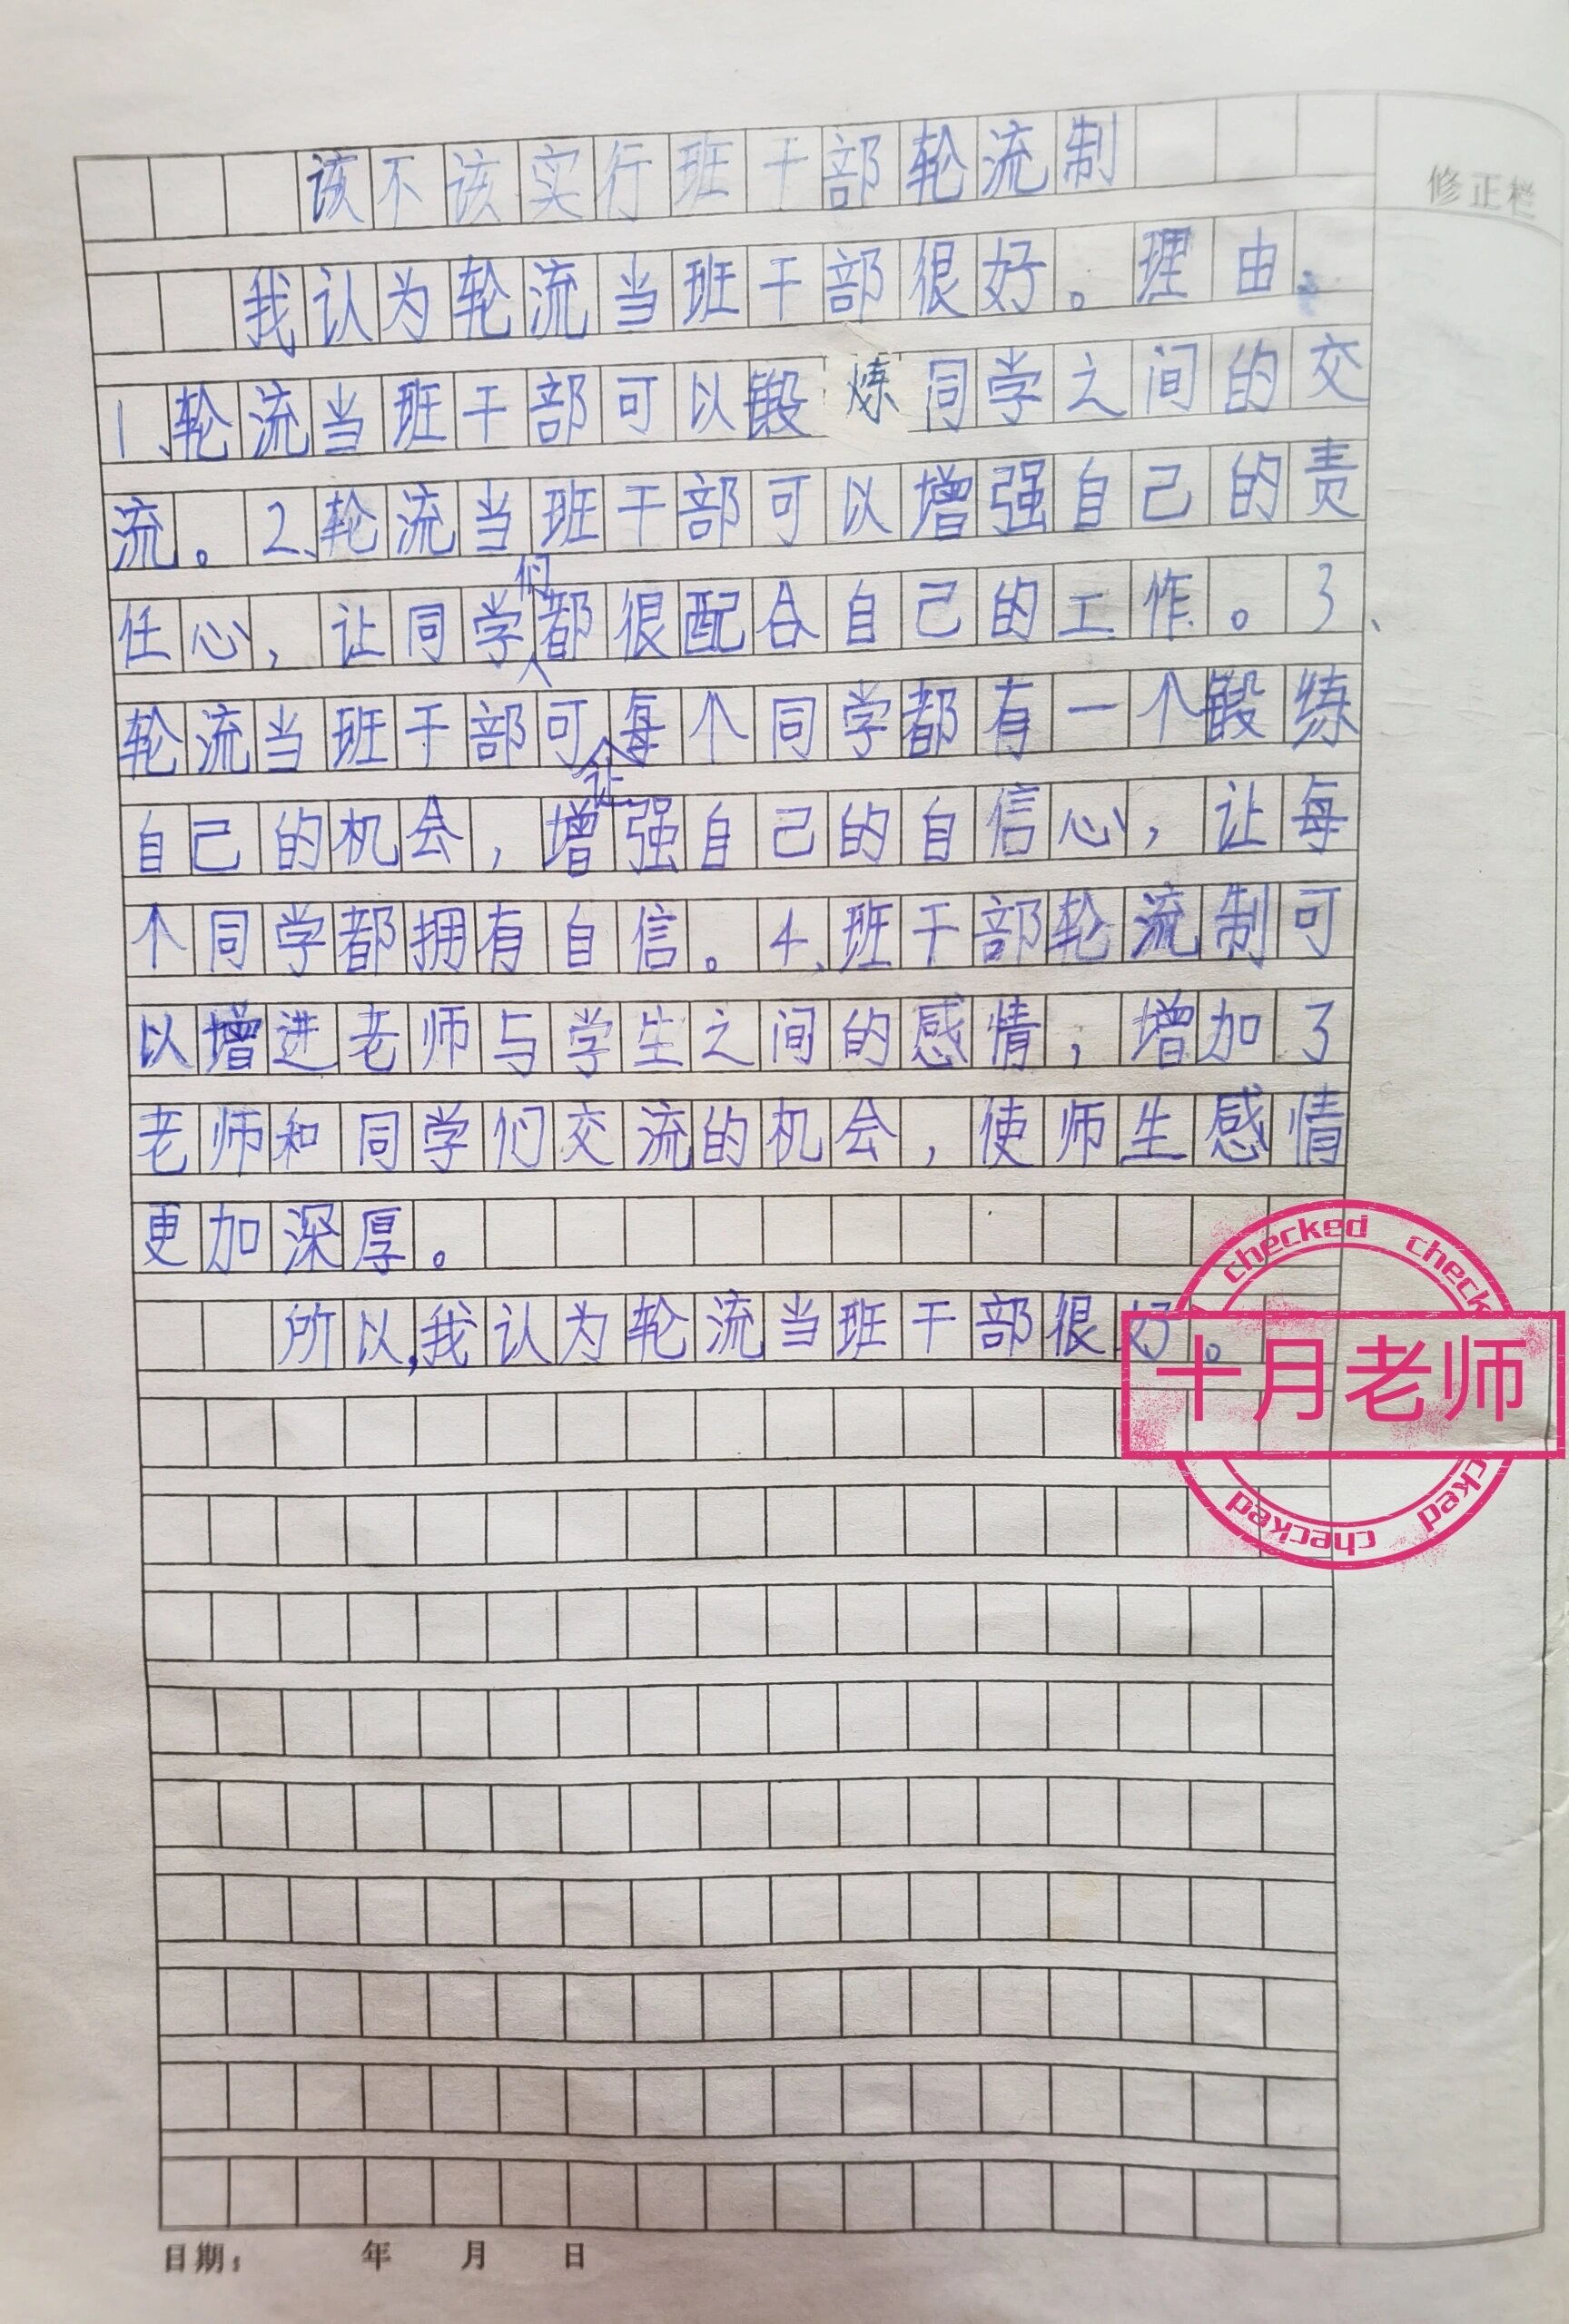 该不该实行班干部轮流制
修正栏
我认为轮流当班干部很好。理由：
1、轮流当班干部可以锻炼同学之间的交
流。2、轮流当班干部可以增强自己的责
任心，让同学们都很配合自己的工作。3、
轮流当班干部可让每个同学都有一个锻练
自己的机会，增强自己的自信心，让每
个同学都拥有自信。4、班干部轮流制可
以增进老师与学生之间的感情，增加了
老师和同学们交流的机会，使师生感情
更加深厚。
所以，我认为轮流当班干部很好。
checked check
十月老师
checked checked cked
日期： 年 月 日